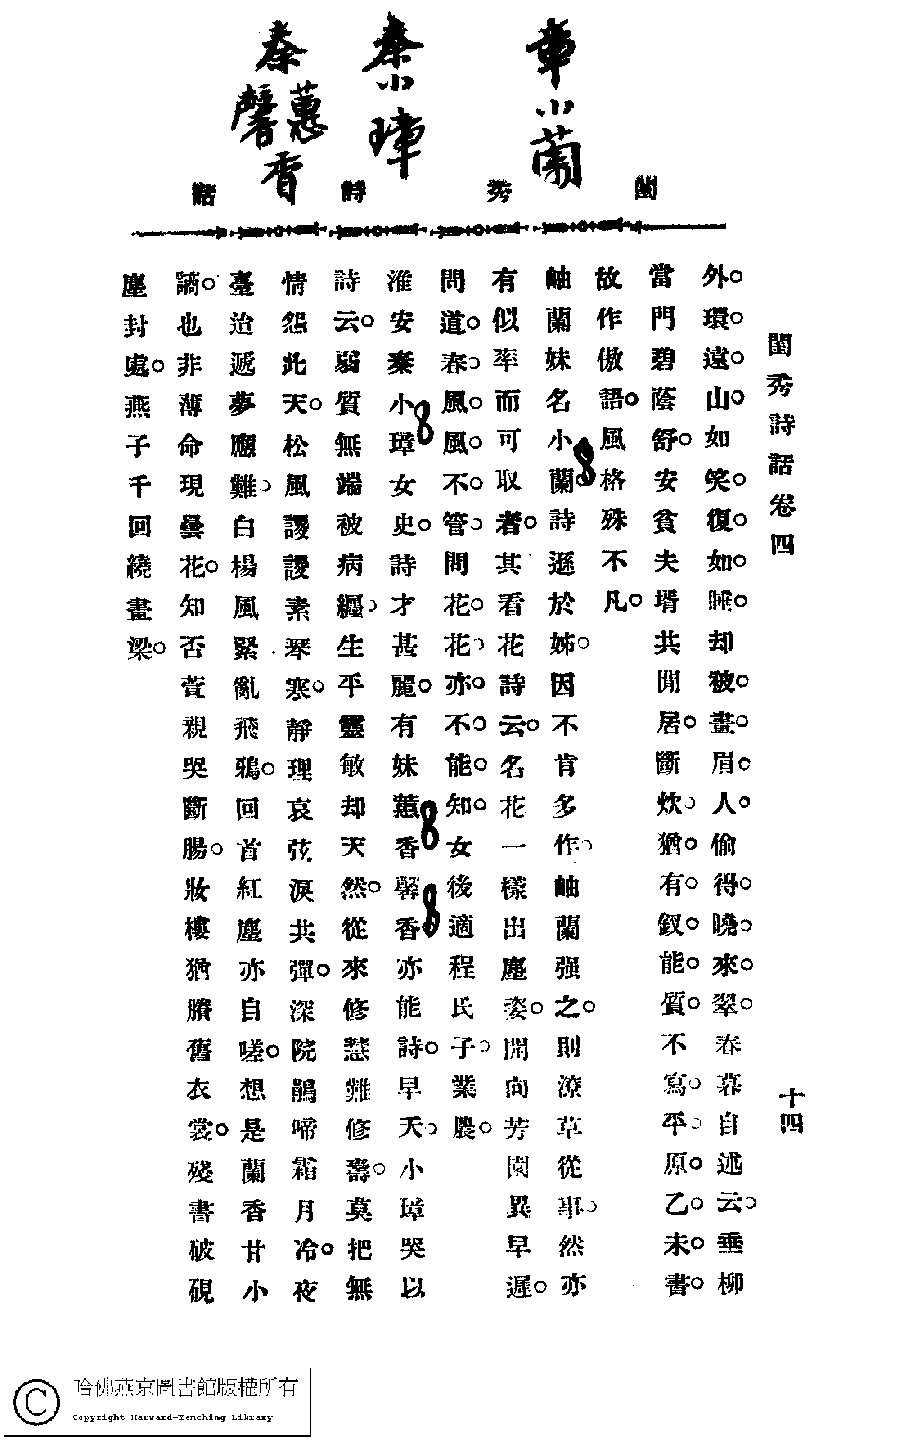 章小蘭
秦小璋
秦蕙香
馨
閨秀詩話
閨秀詩話卷四
十四
外。環。遠。山。如笑。復。如。睡。却被。畫。眉。人。偷得。曉。來。翠。春暮自述云。垂柳
當門碧蔭舒。安貧夫壻共閒居。斷炊。猶。有。釵。能。質。不寫。平。原。乙。未。書。
故作傲語。風格殊不凡。
岫蘭妹名小蘭。詩遜於姊。因不肯多作。岫蘭强之。則潦草從事。然亦
有似率而可取者。其看花詩云。名花一樣出塵姿。開向芳園異早遲。
問道。春。風。風。不。管。問花。花。亦。不。能。知。女後適程氏子。業農。
淮安秦小璋女史。詩才甚麗。有妹蕙香馨香亦能詩。早夭。小璋哭以
詩云。弱質無端被病纏。生平靈敏却天然。從來修慧難修壽。莫把無
情怨此天。松風謖謖素琴寒。靜理哀弦淚共彈。深院鵑啼霜月冷。夜
臺迨遞夢應難。白楊風緊亂飛鴉。回首紅塵亦自嗟。想是蘭香甘小
謫。也非薄命現曇花。知否萱親哭斷腸。妝樓猶賸舊衣裳。殘書破硯
塵封處。燕子千回繞畫梁。
哈佛燕京圖書館版權所有
Copyright Harvard-Yenching Library